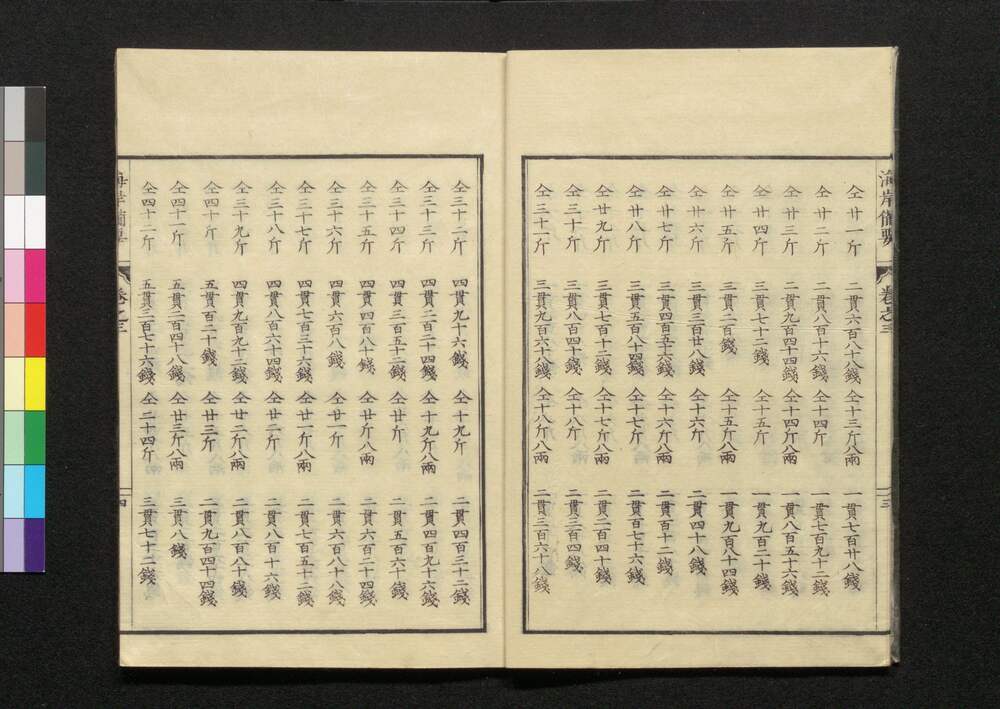 海岸備要 卷之三 三
仝廿一斤 二貫六百八十八錢 仝十三斤八兩 一貫七百廿八錢
仝廿二斤 二貫八百十六錢 仝十四斤 一貫七百九十二錢
仝廿三斤 二貫九百四十四錢 仝十四斤八兩 一貫八百五十六錢
仝廿四斤 三貫七十二錢 仝十五斤 一貫九百二十錢
仝廿五斤 三貫二百錢 仝十五斤八兩 一貫九百八十四錢
仝廿六斤 三貫三百廿八錢 仝十六斤 二貫四十八錢
仝廿七斤 三貫四百五十六錢 仝十六斤八兩 二貫百十二錢
仝廿八斤 三貫五百八十四錢 仝十七斤 二貫百七十六錢
仝廿九斤 三貫七百十二錢 仝十七斤八兩 二貫二百四十錢
仝三十斤 三貫八百四十錢 仝十八斤 二貫三百四錢
仝三十一斤 三貫九百六十八錢 仝十八斤八兩 二貫三百六十八錢
仝三十二斤 四貫九十六錢 仝十九斤 二貫四百三十二錢
仝三十三斤 四貫二百二十四錢 仝十九斤八兩 二貫四百九十六錢
仝三十四斤 四貫三百五十二錢 仝廿斤 二貫五百六十錢
仝三十五斤 四貫四百八十錢 仝廿斤八兩 二貫六百二十四錢
仝三十六斤 四貫六百八錢 仝廿一斤 二貫六百八十八錢
仝三十七斤 四貫七百三十六錢 仝廿一斤八兩 二貫七百五十二錢
仝三十八斤 四貫八百六十四錢 仝廿二斤 二貫八百十六錢
仝三十九斤 四貫九百九十二錢 仝廿二斤八兩 二貫八百八十錢
仝四十斤 五貫百二十錢 仝廿三斤 二貫九百四十四錢
仝四十一斤 五貫二百四十八錢 仝廿三斤八兩 三貫八錢
仝四十二斤 五貫三百七十六錢 仝二十四斤 三貫七十二錢
海岸備要 卷之三 四